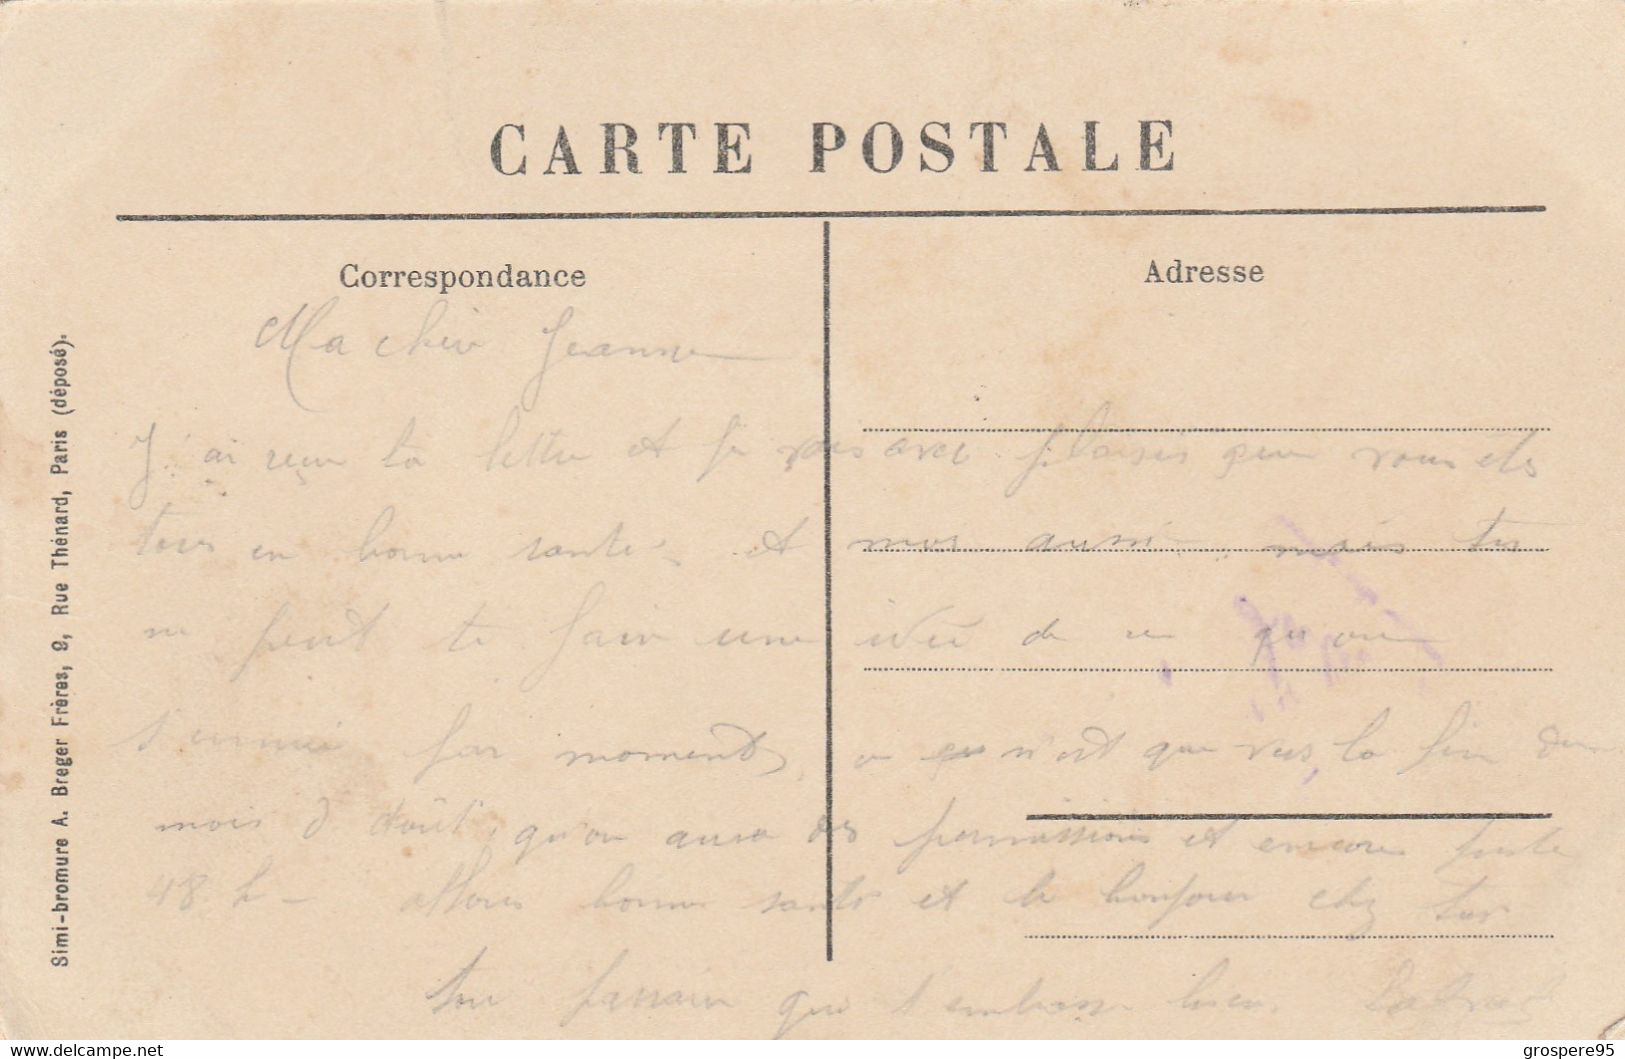 CARTE POSTALE
Correspondance
Adresse
Ma cher Jeanne
J'ai reçu ta lettre et je vois avec plaisir que vous êtes
tous en bonne sante et moi aussi mais tu
ne peut te faire une idée de ce qu'on
s'ennui par moments, ce n'est que vers la fin du
mois d'Août, qu'on aura des permissions et encore juste
48 h – allons bonne sante et le bonjour chez toi
ton parrain qui t'embrasse bien.
Simi-bromure A. Breger Frères, 9, Rue Thénard, Paris (déposé).
www.delcampe.net
grospere95